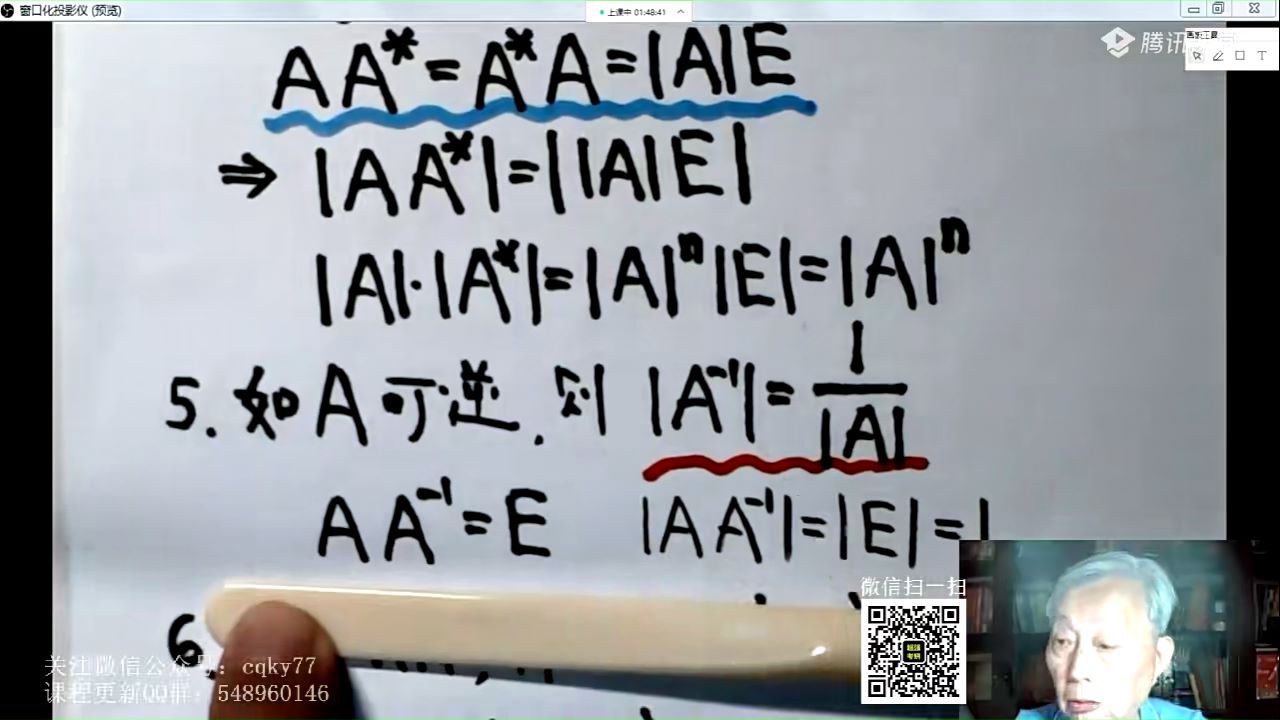 窗口化投影仪 (预览)
上课中 01:48:41
腾讯
画板工具
T
AA*=A*A=|A|E
⇒ |AA*|=||A|E|
|A|·|A*|=|A|ⁿ|E|=|A|ⁿ
5. 如A可逆,则 |A⁻¹|=1/|A|
AA⁻¹=E |AA⁻¹|=|E|=1
6
微信扫一扫
关注微信公众号: cqky77
课程更新QQ群: 548960146